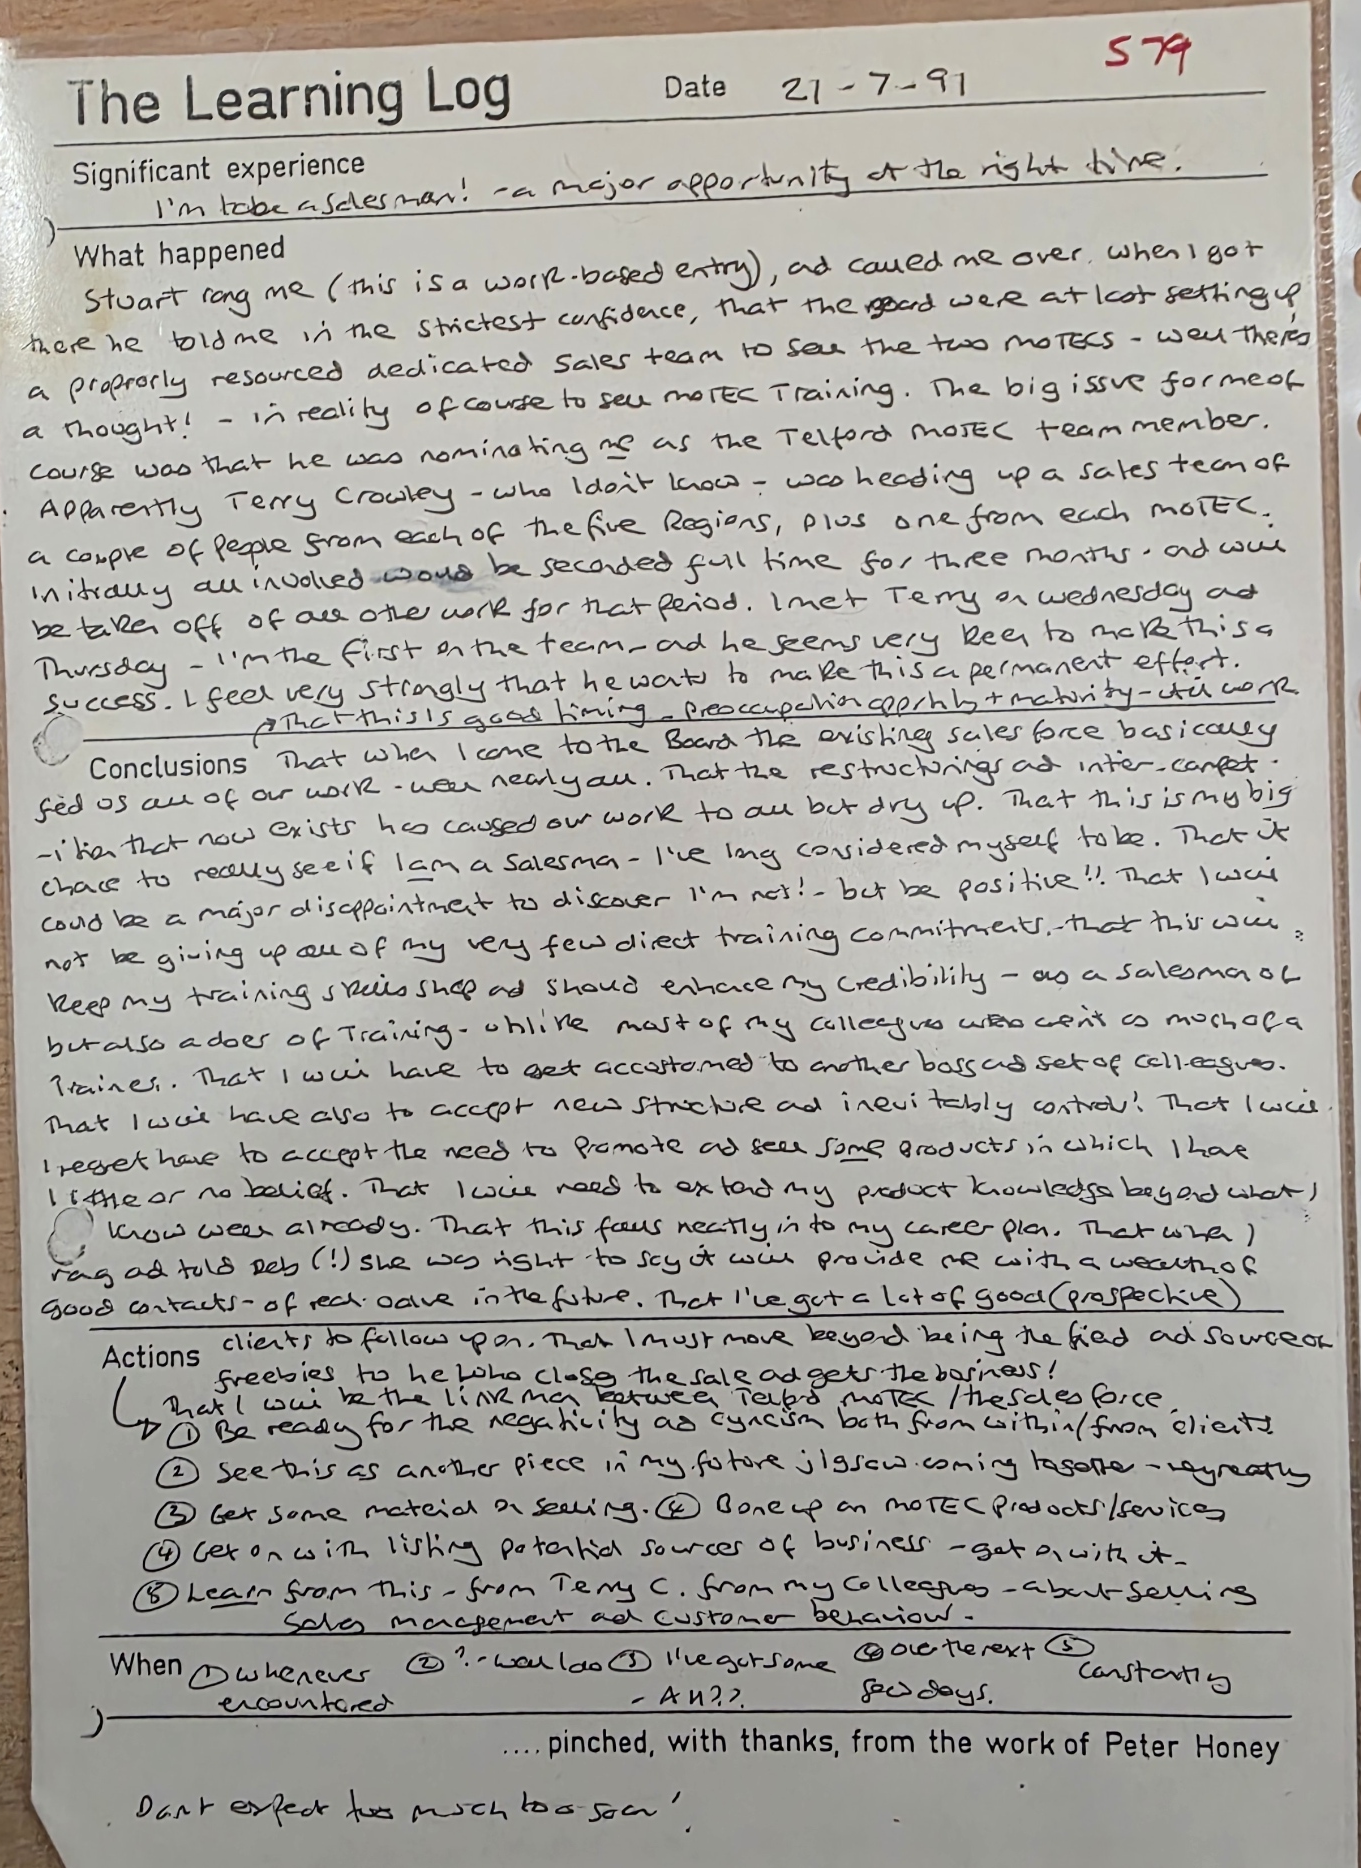 579
The Learning Log Date 21-7-91
Significant experience
I'm to be a salesman! - a major opportunity at the right time.
What happened
Stuart rang me (this is a work-based entry), ad called me over. When I got
there he told me in the strictest confidence, that the Board were at last setting up
a proprorly resourced dedicated sales team to sell the two MOTECS - well there's
a thought! - in reality of course to sell MOTEC Training. The big issue for me of
course was that he was nominating me as the Telford MOTEC team member.
Apparently Terry Crowley - who I don't know - was heading up a sales team of
a couple of people from each of the five Regions, plus one from each MOTEC.
Initially all involved would be seconded full time for three months. ad will
be taken off of all other work for that period. I met Terry on wednesday ad
Thursday - I'm the first on the team - ad he seems very keen to make this a
success. I feel very strongly that he wants to make this a permanent effort.
That this is good timing - preoccupation opp + maturity - work
Conclusions That when I came to the Board the existing sales force basically
fed us all of our work - well nearly all. That the restructurings ad inter-compet-
-ition that now exists has caused our work to all but dry up. That this is my big
chance to really see if I am a salesman - I've long considered myself to be. That it
could be a major disappointment to discover I'm not! - but be positive!! That I will
not be giving up all of my very few direct training commitments, - that this will
keep my training skills sharp ad should enhance my credibility - as a salesman of
but also a doer of Training - unlike most of my colleagues who aren't as much of a
Trainer. That I will have to get accustomed to another boss ad set of colleagues.
That I will have also to accept new structure ad inevitably control! That I will
I regret have to accept the need to promote ad sell some products in which I have
little or no belief. That I will need to extend my product knowledge beyond what I
know well already. That this falls neatly in to my career plan. That when I
rang ad told Deb (!) she was right to say it will provide me with a wealth of
good contacts - of real value in the future. That I've got a lot of good (prospective)
Actions clients to follow up on. That I must move beyond being the fied ad source of
freebies to he who closes the sale ad gets the business!
That I will be the link man between Telford MOTEC / the sales force.
① Be ready for the negativity ad cynicism both from within/from clients
② See this as another piece in my future jigsaw coming together - very neatly
③ Get some material on selling. ④ Bone up on MOTEC Products/services
④ Get on with listing potential sources of business - get on with it -
⑤ Learn from this - from Terry C. from my colleagues - about selling
Sales management ad customer behaviour -
When ① whenever ② ? - will do ③ I've got some ④ over the next ⑤
encountered - AH?? few days. Constantly
....pinched, with thanks, from the work of Peter Honey
Don't expect too much too soon!